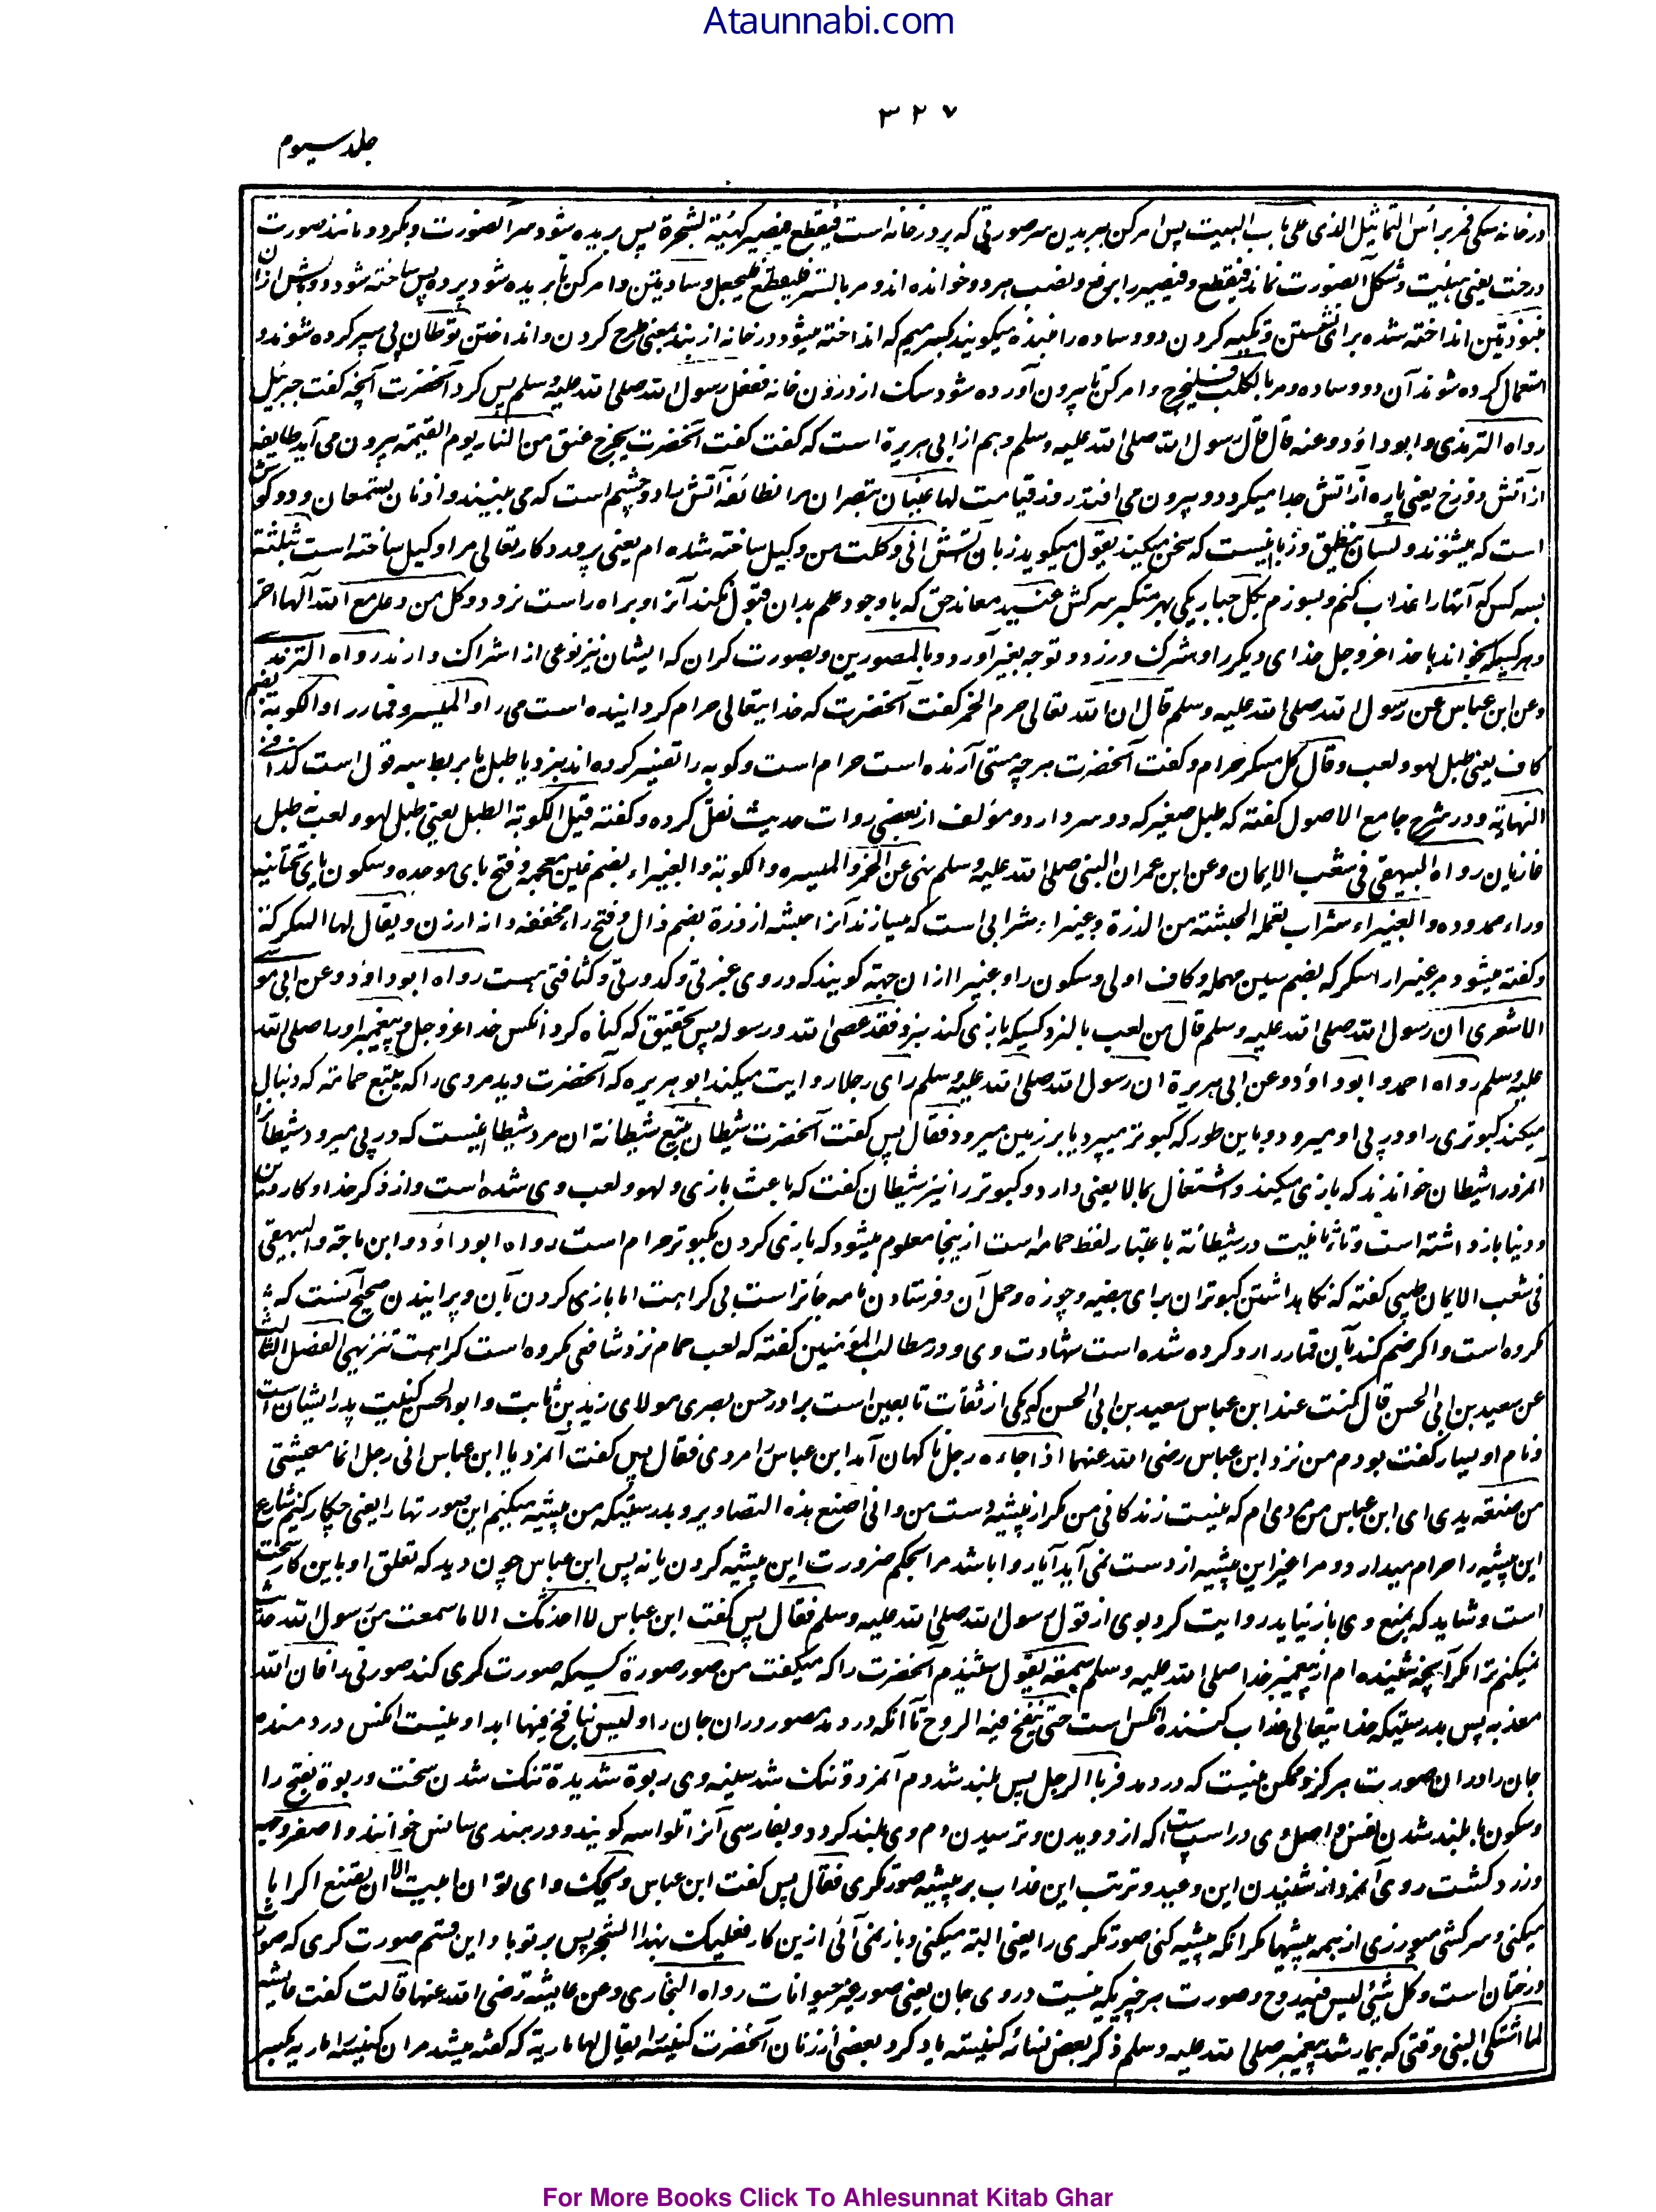 Ataunnabi.com
۳۲۷
جلد سیوم
در خانه سکی فمر براس التماثیل الذی علی باب البیت پس امر کن ببریدن سر صورتی که بر در خانه است فیقطع فیصیر کهیئة الشجرة پس بریده شود سر آن صورت و بگردد مانند صورت
درخت یعنی هیئت و شکل آن صورت نماند فیقطع و فیصیر را برفع و نصب هر دو خوانده اند و مر بالستر فلیقطع فلیجعل وسادتین و امر کن تا بریده شود پرده پس ساخته شود دو بالش ازان
منبوذتین انداخته شده برای نشستن و تکیه کردن و وساده را منبذه میگویند بکسر میم که انداخته میشود در خانه از نبذ بمعنی طرح کردن و انداختن توطآن پی سپر کرده شوند و
استعمال کرده شوند آن دو وساده و مر بالکلب فلیخرج و امر کن تا بیرون آورده شود سگ از درون خانه ففعل رسول الله صلی الله علیه و سلم پس کرد آنحضرت آنچه گفت جبرئیل
رواه الترمذی و ابو داؤد و عنه قال قال رسول الله صلی الله علیه وسلم و هم از ابی هریرة است که گفت گفت آنحضرت یخرج عنق من النار یوم القیمة بیرون می آید طایفه
از آتش دوزخ یعنی پاره از آتش جدا میگردد و بیرون می افتد روز قیامت لها عینان تبصران مر آن طائفه آتش را دو چشم است که می بینند و اذنان یسمعان و دو گوش
است که میشنوند و لسان ینطق و زبانیست که سخن میکند یقول میگوید زبان آتش انی وکلت من وکیل ساخته شده ام یعنی پروردگار تعالی مرا وکیل ساخته است بثلثة
بسه کس که آنها را عذاب کنم و بسوزم بکل جبار یکی بهر متکبر سرکش عنید معاند حق که با وجود علم بدان قبول نکند آنرا و براه راست نرود و کل من دعا مع الله آلها اخر
و هر کسیکه بخواند با خدا عز و جل خدای دیگر را و شرک ورزد و توجه بغیر آورد و بالمصورین و بصورت گران که ایشان نیز نوعی از اشراک دارند رواه الترمذی
و عن ابن عباس عن رسول الله صلی الله علیه وسلم قال ان الله تعالی حرم الخمر گفت آنحضرت که خدایتعالی حرام گردانیده است می را و المیسر و قمار را و الکوبة بضم
کاف یعنی طبل لهو و لعب و قال کل مسکر حرام و گفت آنحضرت هر چه مستی آرنده است حرام است و کوبه را تفسیر کرده اند بنرد یا طبل یا بربط سه قول است کذا فی
النهایة و در شرح جامع الاصول گفته که طبل صغیر که دو سر دارد و مؤلف از بعضی روات حدیث نقل کرده و گفته قیل الکوبة الطبل یعنی طبل لهو و لعب نه طبل
غازیان رواه البیهقی فی شعب الایمان و عن ابن عمر ان النبی صلی الله علیه وسلم نهی عن الخمر و المیسر و الکوبة و الغبیراء بضم غین معجمه و فتح بای موحده و سکون یای تحتانیه
وراء ممدوده و الغبیراء شراب تعمله الحبشة من الذرة و غبیراء شرابی است که میسازند آنرا حبشه از ذرة بضم ذال و فتح راء مخففه دانه ارزن و یقال لها السکرکة
و گفته میشود مر غبیرا را سکرکه بضم سین مهمله و کاف اولی و سکون را و غبیرا ازان جهة گویند که در وی غبرتی و کدورتی و کثافتی هست رواه ابو داؤد و عن ابی موسی
الاشعری ان رسول الله صلی الله علیه وسلم قال من لعب بالنرد کسیکه بازی کند بنرد فقد عصی الله و رسوله پس بتحقیق که گناه کرد آنکس خدا عز و جل و پیغمبر او را صلی الله
علیه وسلم رواه احمد و ابو داؤد و عن ابی هریرة ان رسول الله صلی الله علیه وسلم رای رجلا روایت میکند ابو هریره که آنحضرت دید مردی را که یتبع حمامة که دنبال
میکند کبوتری را و در پی او میرود و باین طور که کبوتر میپرد یا بر زمین میرود فقال پس گفت آنحضرت شیطان یتبع شیطانة آن مرد شیطانیست که در پی میرود شیطانه را
آنمرد را شیطان خواندند که بازی میکند و اشتغال بمالا یعنی دارد و کبوتر را نیز شیطان گفت که باعث بازی و لهو و لعب وی شده است و از ذکر خدا و کار دین
و دنیا باز داشته است و تانیث در شیطانة باعتبار لفظ حمامه است ازینجا معلوم میشود که بازی کردن بکبوتر حرام است رواه ابو داؤد و ابن ماجة و البیهقی
فی شعب الایمان طیبی گفته که نگاهداشتن کبوتران برای بیضه و چوزه و حمل آن و فرستادن نامه جائز است بی کراهت اما بازی کردن بآن و پرانیدن صحیح آنست که
مکروه است و اگر ضم کند بآن قمار را رد کرده شده است شهادت وی و در مطالب المؤمنین گفته که لعب حمام نزد شافعی مکروه است کراهت تنزیهی الفصل الثالث
عن سعید بن ابی الحسن قال کنت عند ابن عباس سعید بن ابی الحسن که یکی از ثقات تابعین است برادر حسن بصری مولای زید بن ثابت و ابو الحسن کنیت پدر ایشان است
و نام او یسار گفت بودم من نزد ابن عباس رضی الله عنهما اذ جاءه رجل ناگهان آمد ابن عباس را مردی فقال پس گفت آنمرد یا ابن عباس انی رجل انما معیشتی
من صنعة یدی ای ابن عباس من مردی ام که نیست زندگانی من مگر از پیشه دست من و انی اصنع هذه التصاویر و بدرستیکه من پیشه میکنم این صورتها را یعنی چکار کنم شارع
این پیشه را حرام میدارد و مرا غیر این پیشه از دست نمی آید آیا روا باشد مرا بحکم ضرورت این پیشه کردن یا نه پس ابن عباس چون دید که تعلق او باین کار سخت
است و شاید که بمنع وی باز نیاید روایت کرد بوی از قول رسول الله صلی الله علیه وسلم فقال پس گفت ابن عباس لا احدثک الا ما سمعت من رسول الله حدیث
نمیکنم ترا مگر آنچه شنیده ام از پیغمبر خدا صلی الله علیه وسلم سمعته یقول شنیدم آنحضرت را که میگفت من صور صورة کسیکه صورت گری کند صورتی را فان الله
معذبه پس بدرستیکه خدایتعالی عذاب کننده آنکس است حتی ینفخ فیه الروح تا آنکه در دمد مصور دران جان را و لیس بنافخ فیها ابدا و نیست آنکس در دمنده
جان را دران صورت هرگز و ممکن نیست که در دمد فربا الرجل پس بلند شد دم آنمرد و تنگ شد سینه وی ربوة شدیدة تنگ شدن سخت و ربوة بفتح را
و سکون با بلند شدن نفس و اصل وی در اسپ است که از دویدن و ترسیدن دم وی بلند گردد و بفارسی آنرا تلواسه گویند و در هندی سانس خوانند و اصفر وجهه
و زرد گشت روی آنمرد از شنیدن این وعید و ترتب این عذاب بر پیشه صورتگری فقال پس گفت ابن عباس ویحک وای تو ان ابیت الا ان تصنع اگر ابا
میکنی و سرکشی میورزی از همه پیشها مگر آنکه پیشه کنی صورتگری را یعنی البته میکنی و باز نمی آئی ازین کار فعلیک بهذا الشجر پس بر تو باد این قسم صورت گری که صورت
درختان است و کل شئ لیس فیه روح و صورت هر چیزیکه نیست در وی جان یعنی صور غیر حیوانات رواه البخاری و عن عایشة رضی الله عنها قالت گفت عایشه
لما اشتکی النبی وقتی که بیمار شد پیغمبر صلی الله علیه وسلم ذکر بعض نسائه کنیسة یاد کرد بعضی از زنان آنحضرت کنیسة را یقال لها ماریة که گفته میشد مر آن کنیسه را ماریه بکسر
For More Books Click To Ahlesunnat Kitab Ghar